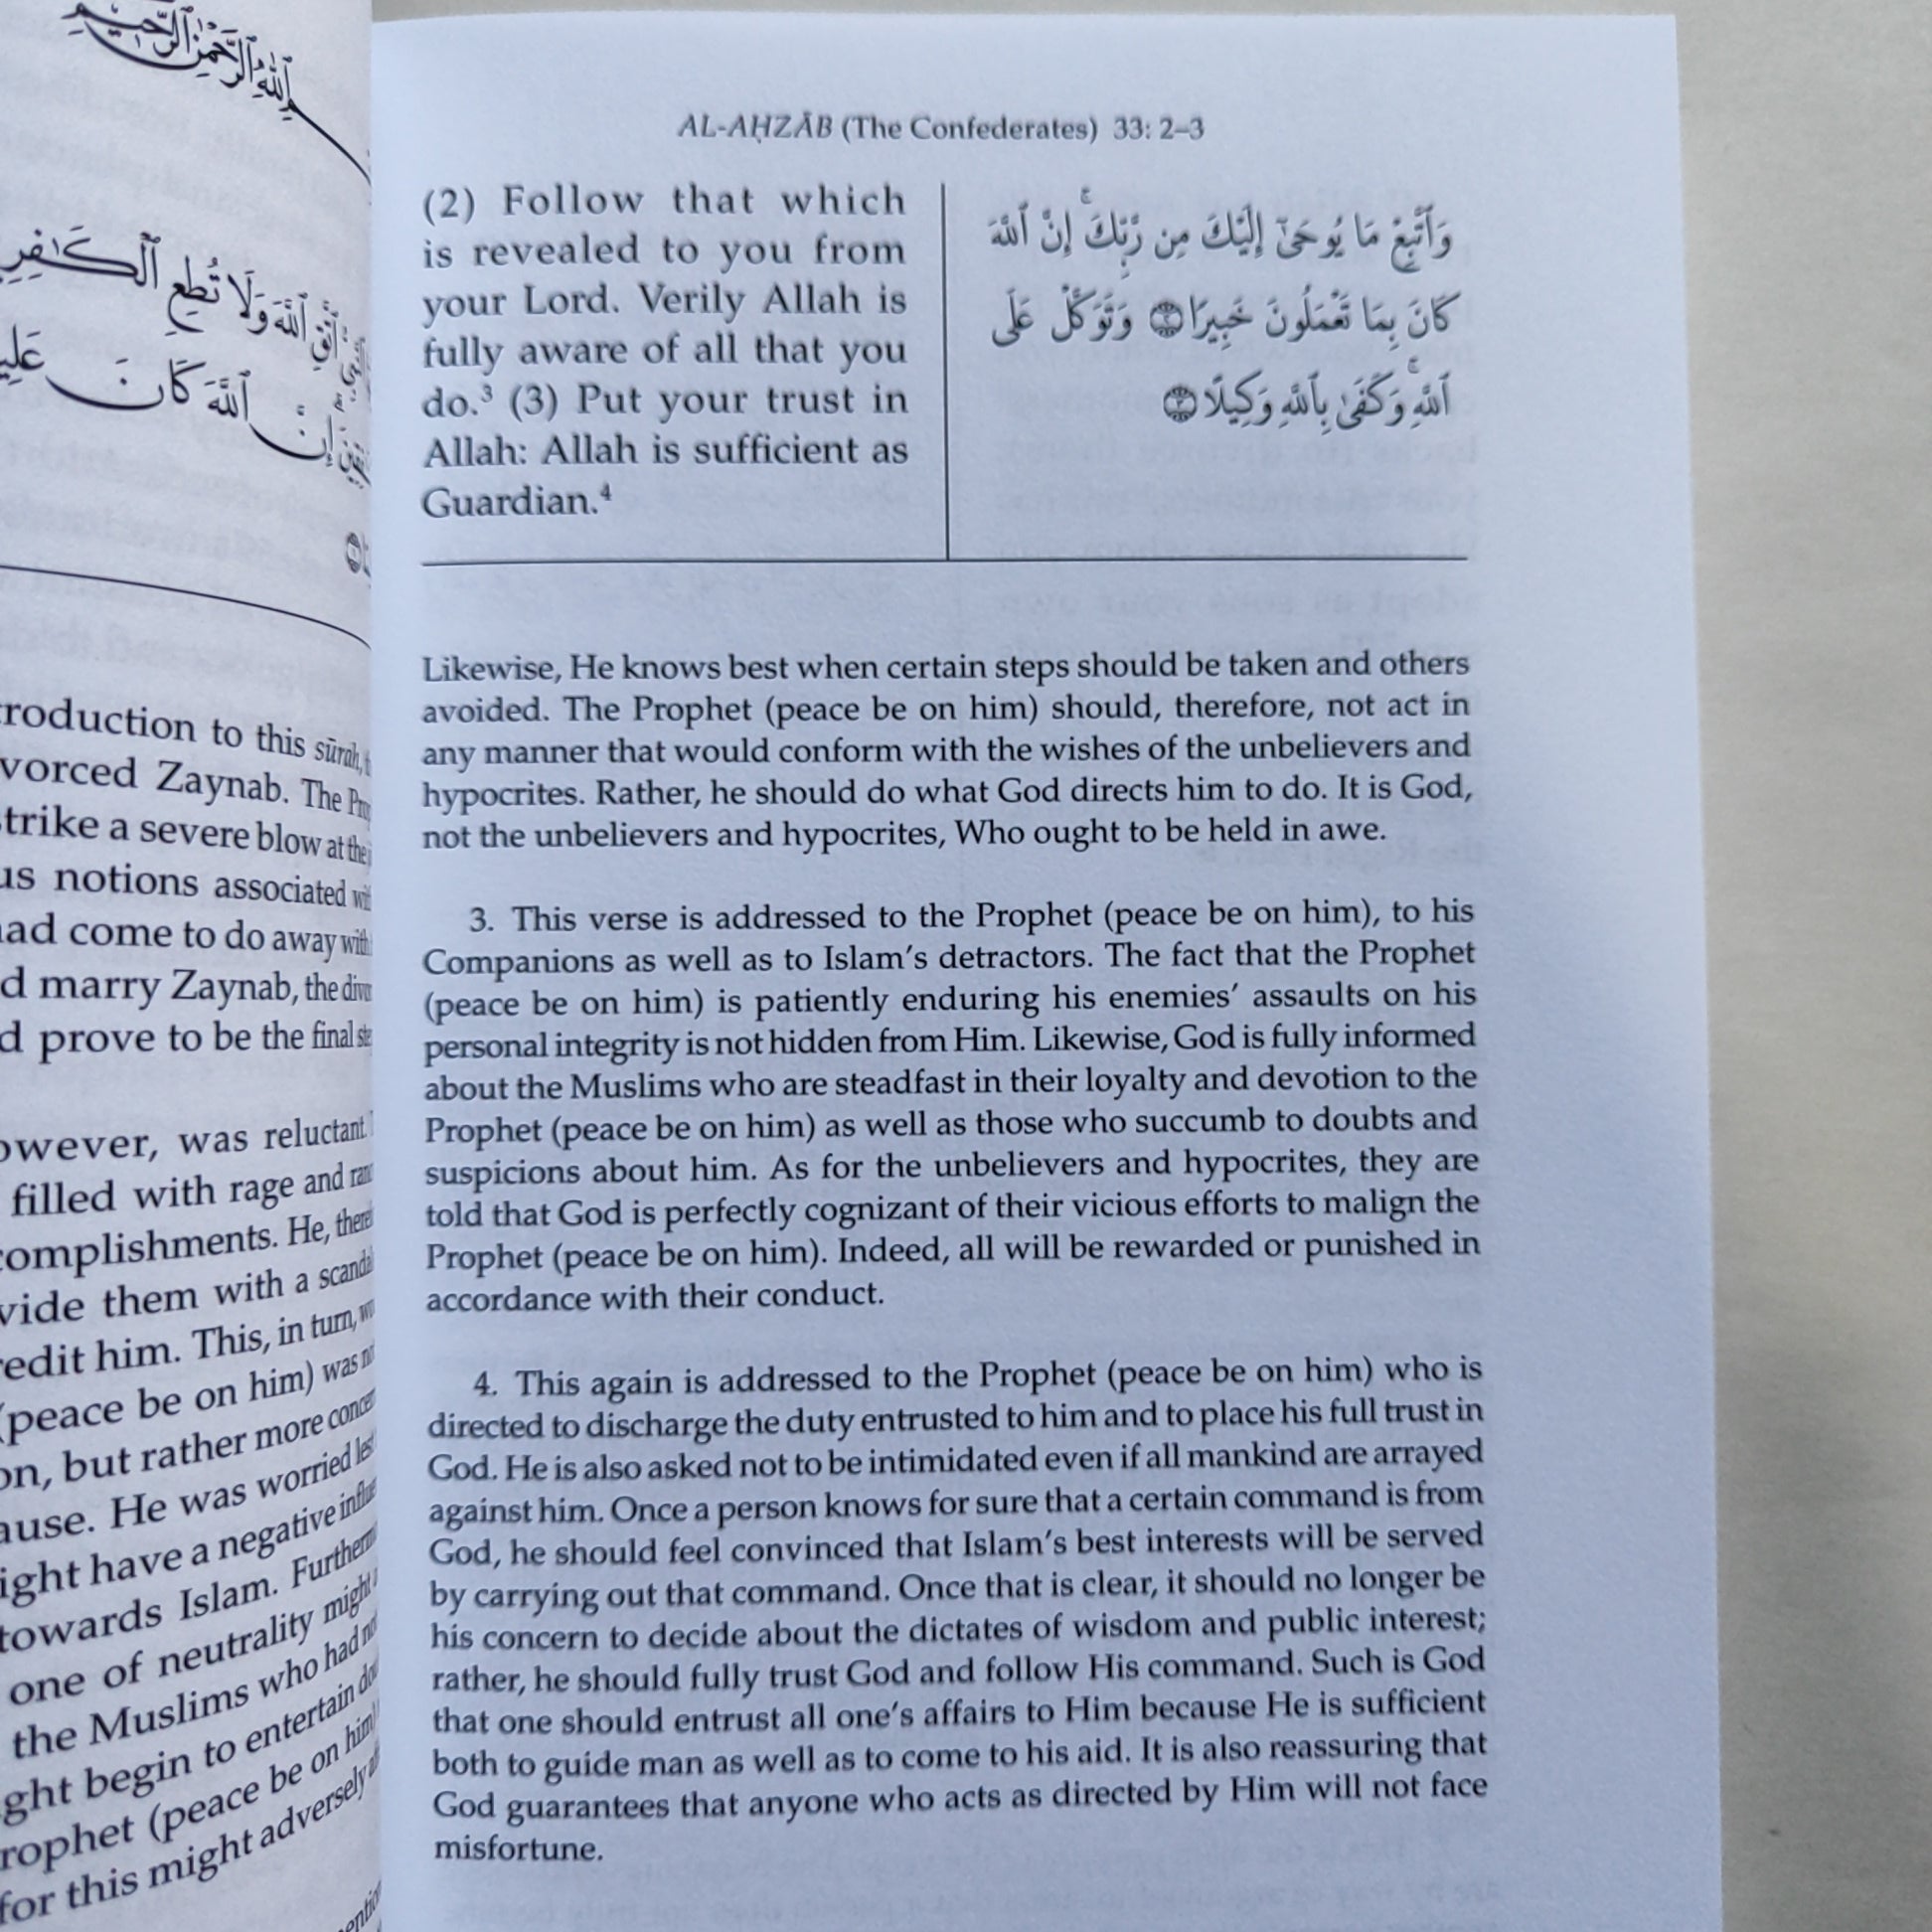 ٱللَّهِ ٱلرَّحْمَٰنِ ٱلرَّحِيمِ
ٱتَّقِ ٱللَّهَ وَلَا تُطِعِ
إِنَّ ٱللَّهَ كَانَ
this sūrah,
Zaynab. The
strike a severe blow at the
notions associated
had come to do away with
marry Zaynab, the
prove to be the final
was reluctant.
filled with rage and
He,
them with a
him. This, in turn,
(peace be on him) was
but rather more
He was worried lest
have a negative
towards Islam.
one of neutrality might
the Muslims who had
begin to entertain
(peace be on him)
for this might adversely
AL-AḤZĀB (The Confederates) 33: 2–3
(2) Follow that which
is revealed to you from
your Lord. Verily Allah is
fully aware of all that you
do.³ (3) Put your trust in
Allah: Allah is sufficient as
Guardian.⁴
وَٱتَّبِعْ مَا يُوحَىٰٓ إِلَيْكَ مِن رَّبِّكَ ۚ إِنَّ ٱللَّهَ
كَانَ بِمَا تَعْمَلُونَ خَبِيرًا ۝٢ وَتَوَكَّلْ عَلَى
ٱللَّهِ ۚ وَكَفَىٰ بِٱللَّهِ وَكِيلًا ۝٣
Likewise, He knows best when certain steps should be taken and others
avoided. The Prophet (peace be on him) should, therefore, not act in
any manner that would conform with the wishes of the unbelievers and
hypocrites. Rather, he should do what God directs him to do. It is God,
not the unbelievers and hypocrites, Who ought to be held in awe.
3. This verse is addressed to the Prophet (peace be on him), to his
Companions as well as to Islam's detractors. The fact that the Prophet
(peace be on him) is patiently enduring his enemies' assaults on his
personal integrity is not hidden from Him. Likewise, God is fully informed
about the Muslims who are steadfast in their loyalty and devotion to the
Prophet (peace be on him) as well as those who succumb to doubts and
suspicions about him. As for the unbelievers and hypocrites, they are
told that God is perfectly cognizant of their vicious efforts to malign the
Prophet (peace be on him). Indeed, all will be rewarded or punished in
accordance with their conduct.
4. This again is addressed to the Prophet (peace be on him) who is
directed to discharge the duty entrusted to him and to place his full trust in
God. He is also asked not to be intimidated even if all mankind are arrayed
against him. Once a person knows for sure that a certain command is from
God, he should feel convinced that Islam's best interests will be served
by carrying out that command. Once that is clear, it should no longer be
his concern to decide about the dictates of wisdom and public interest;
rather, he should fully trust God and follow His command. Such is God
that one should entrust all one's affairs to Him because He is sufficient
both to guide man as well as to come to his aid. It is also reassuring that
God guarantees that anyone who acts as directed by Him will not face
misfortune.